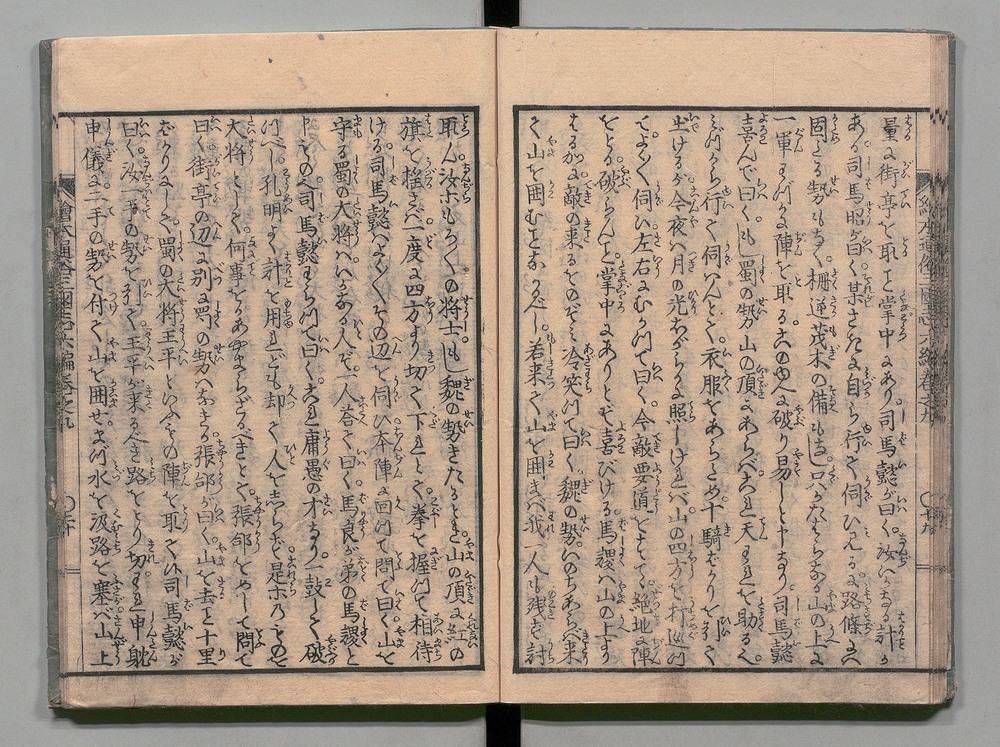 量に街亭を取こと掌中にあり司馬懿が曰く汝いかなる計か
ある司馬昭が曰く某さきに自ら行て伺ひ見るに路條にハ
固とる勢もなく柵逆茂木の備もなし只かたハらなる山の上に
一軍すべて陣を取る破り易しと申すなり司馬懿
喜んで曰くもし蜀の勢山の頂にあらバこれ天われを助るなり
みづから行て伺ハんとて衣服をあらため十騎ばかりをぐして
出けるが今夜ハ月の光あきらかに照しけれバ山の四方を打巡つ
てよく伺ひ左右にむかつて曰く今敵要道をすてゝ絶地に陣
をとる破らんこと掌中にありとぞ喜びける馬謖ハ山の上より
はるかに敵の来るをのぞミ冷笑つて曰く魏の勢いのちあらバ来
て山を囲むことなかるべし若来て山を囲まバ我一人も残さず討
取ん汝ホもろ〱の将士もし魏の勢きたるとき山の頂に紅の
旗を揺さバ一度に四方より切て下れとて拳を握つて相待
ける司馬懿ハよく〱その辺を伺ひ本陣に回つて問て曰く山を
守る蜀の大将ハいかなる人ぞ一人答て曰く馬良が弟の馬謖と
司馬懿わらつて曰くこれ庸愚の才なり一鼓して破
つべし孔明よく計を用れども却て人をしらず是ホのものを
大将として何事をかあやまらざるべきとて張郃をめして問て
曰く街亭の辺に別に蜀の勢ハなきか張郃が曰く山を去こと十里
ばかりにして蜀の大将王平といふもの陣を取て候司馬懿が
曰く汝一手の勢を引て王平が来るべき路をとり切れ申耽
申儀に二手の勢を付て山を囲せまづ水を汲路を塞バ山上
繪本通俗三國志六編巻之九